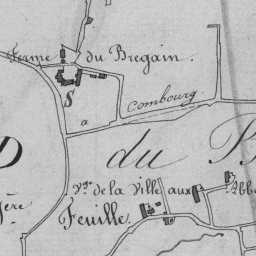 Ferme du Bregain.
Combourg
a
D du B
Vge de la Ville aux Abbé
Feuille
ère